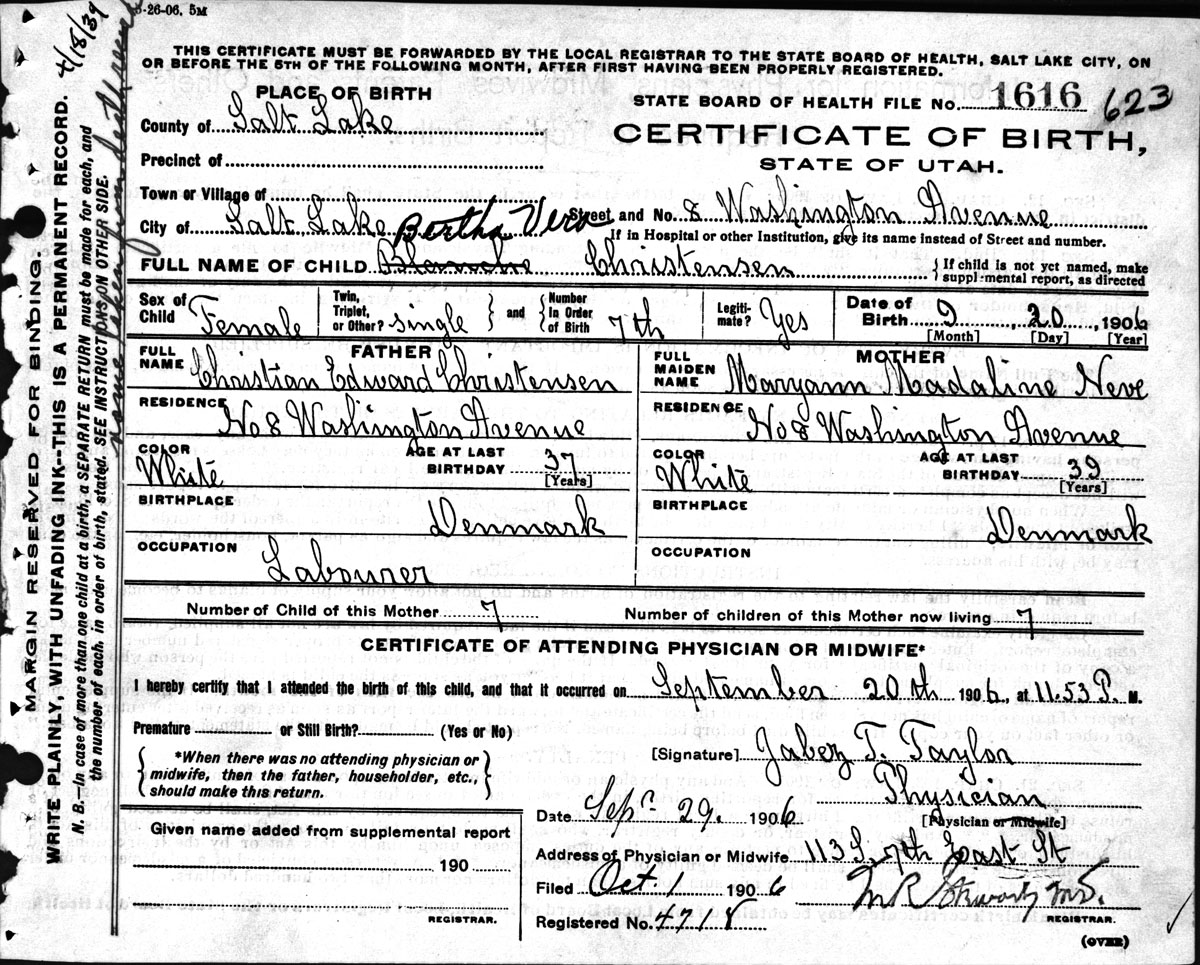 3-26-06. 5M
THIS CERTIFICATE MUST BE FORWARDED BY THE LOCAL REGISTRAR TO THE STATE BOARD OF HEALTH, SALT LAKE CITY, ON
OR BEFORE THE 5TH OF THE FOLLOWING MONTH, AFTER FIRST HAVING BEEN PROPERLY REGISTERED.
PLACE OF BIRTH
STATE BOARD OF HEALTH FILE No. 1616 623
County of Salt Lake
CERTIFICATE OF BIRTH,
STATE OF UTAH.
Precinct of
Town or Village of
City of Salt Lake
Street and No. 8 Washington Avenue
If in Hospital or other Institution, give its name instead of Street and number.
Bertha Vera
FULL NAME OF CHILD Blanche Christensen
If child is not yet named, make
supplmental report, as directed
Sex of Child Female
Twin, Triplet, or Other? single
and
Number In Order of Birth 7th
Legitimate? Yes
Date of Birth 9 20, 1906
[Month] [Day] [Year]
FATHER
FULL NAME Christian Edward Christensen
RESIDENCE No 8 Washington Avenue
COLOR White
AGE AT LAST BIRTHDAY 37
[Years]
BIRTHPLACE Denmark
OCCUPATION Labourer
MOTHER
FULL MAIDEN NAME Maryann Madaline Neve
RESIDENCE No 8 Washington Avenue
COLOR White
AGE AT LAST BIRTHDAY 39
[Years]
BIRTHPLACE Denmark
OCCUPATION
Number of Child of this Mother 7
Number of children of this Mother now living 7
CERTIFICATE OF ATTENDING PHYSICIAN OR MIDWIFE*
I hereby certify that I attended the birth of this child, and that it occurred on September 20th 1906, at 11.53 P. M.
Premature or Still Birth? (Yes or No)
*When there was no attending physician or
midwife, then the father, householder, etc.,
should make this return.
[Signature] Jabez T. Taylor
Physician
[Physician or Midwife]
Date Sepr 29. 1906
Given name added from supplemental report
190
REGISTRAR.
Address of Physician or Midwife 113 S. 7th East St
Filed Oct. 1 1906
M R Stewart M.D.
REGISTRAR.
Registered No. 4778
(OVER)
MARGIN RESERVED FOR BINDING.
WRITE PLAINLY, WITH UNFADING INK--THIS IS A PERMANENT RECORD. 4/18/39
N. B.—In case of more than one child at a birth, a SEPARATE RETURN must be made for each, and
the number of each, in order of birth, stated. SEE INSTRUCTIONS ON OTHER SIDE.
name taken from death record